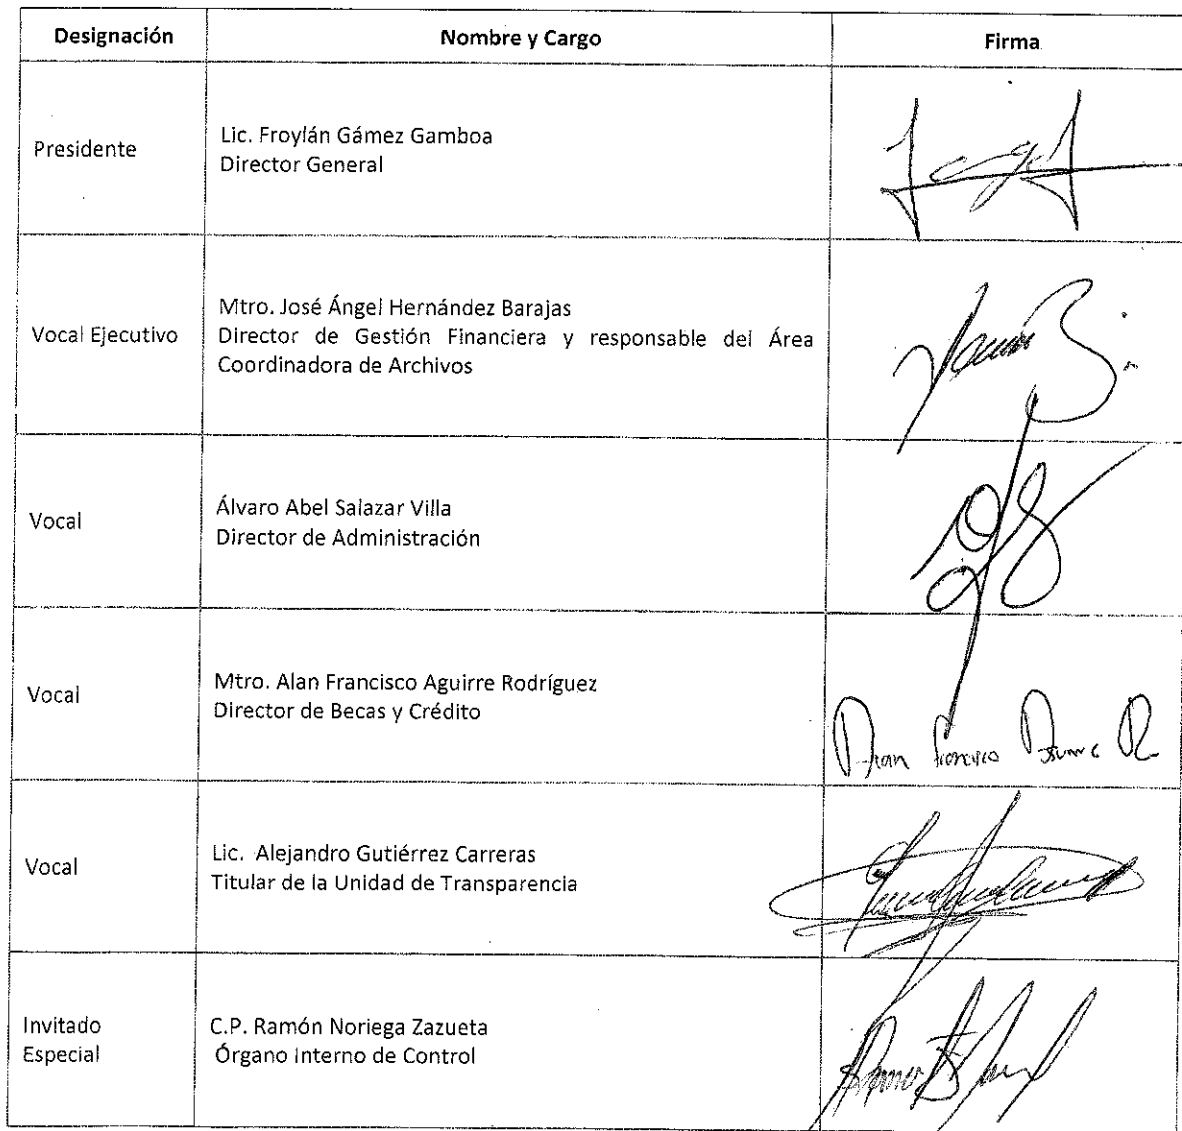 Designación Nombre y Cargo Firma
Presidente
Lic. Froylán Gámez Gamboa
Director General
Vocal Ejecutivo
Mtro. José Ángel Hernández Barajas
Director de Gestión Financiera y responsable del Área
Coordinadora de Archivos
Vocal
Álvaro Abel Salazar Villa
Director de Administración
Vocal
Mtro. Alan Francisco Aguirre Rodríguez
Director de Becas y Crédito
Vocal
Lic. Alejandro Gutiérrez Carreras
Titular de la Unidad de Transparencia
Invitado
Especial
C.P. Ramón Noriega Zazueta
Órgano Interno de Control